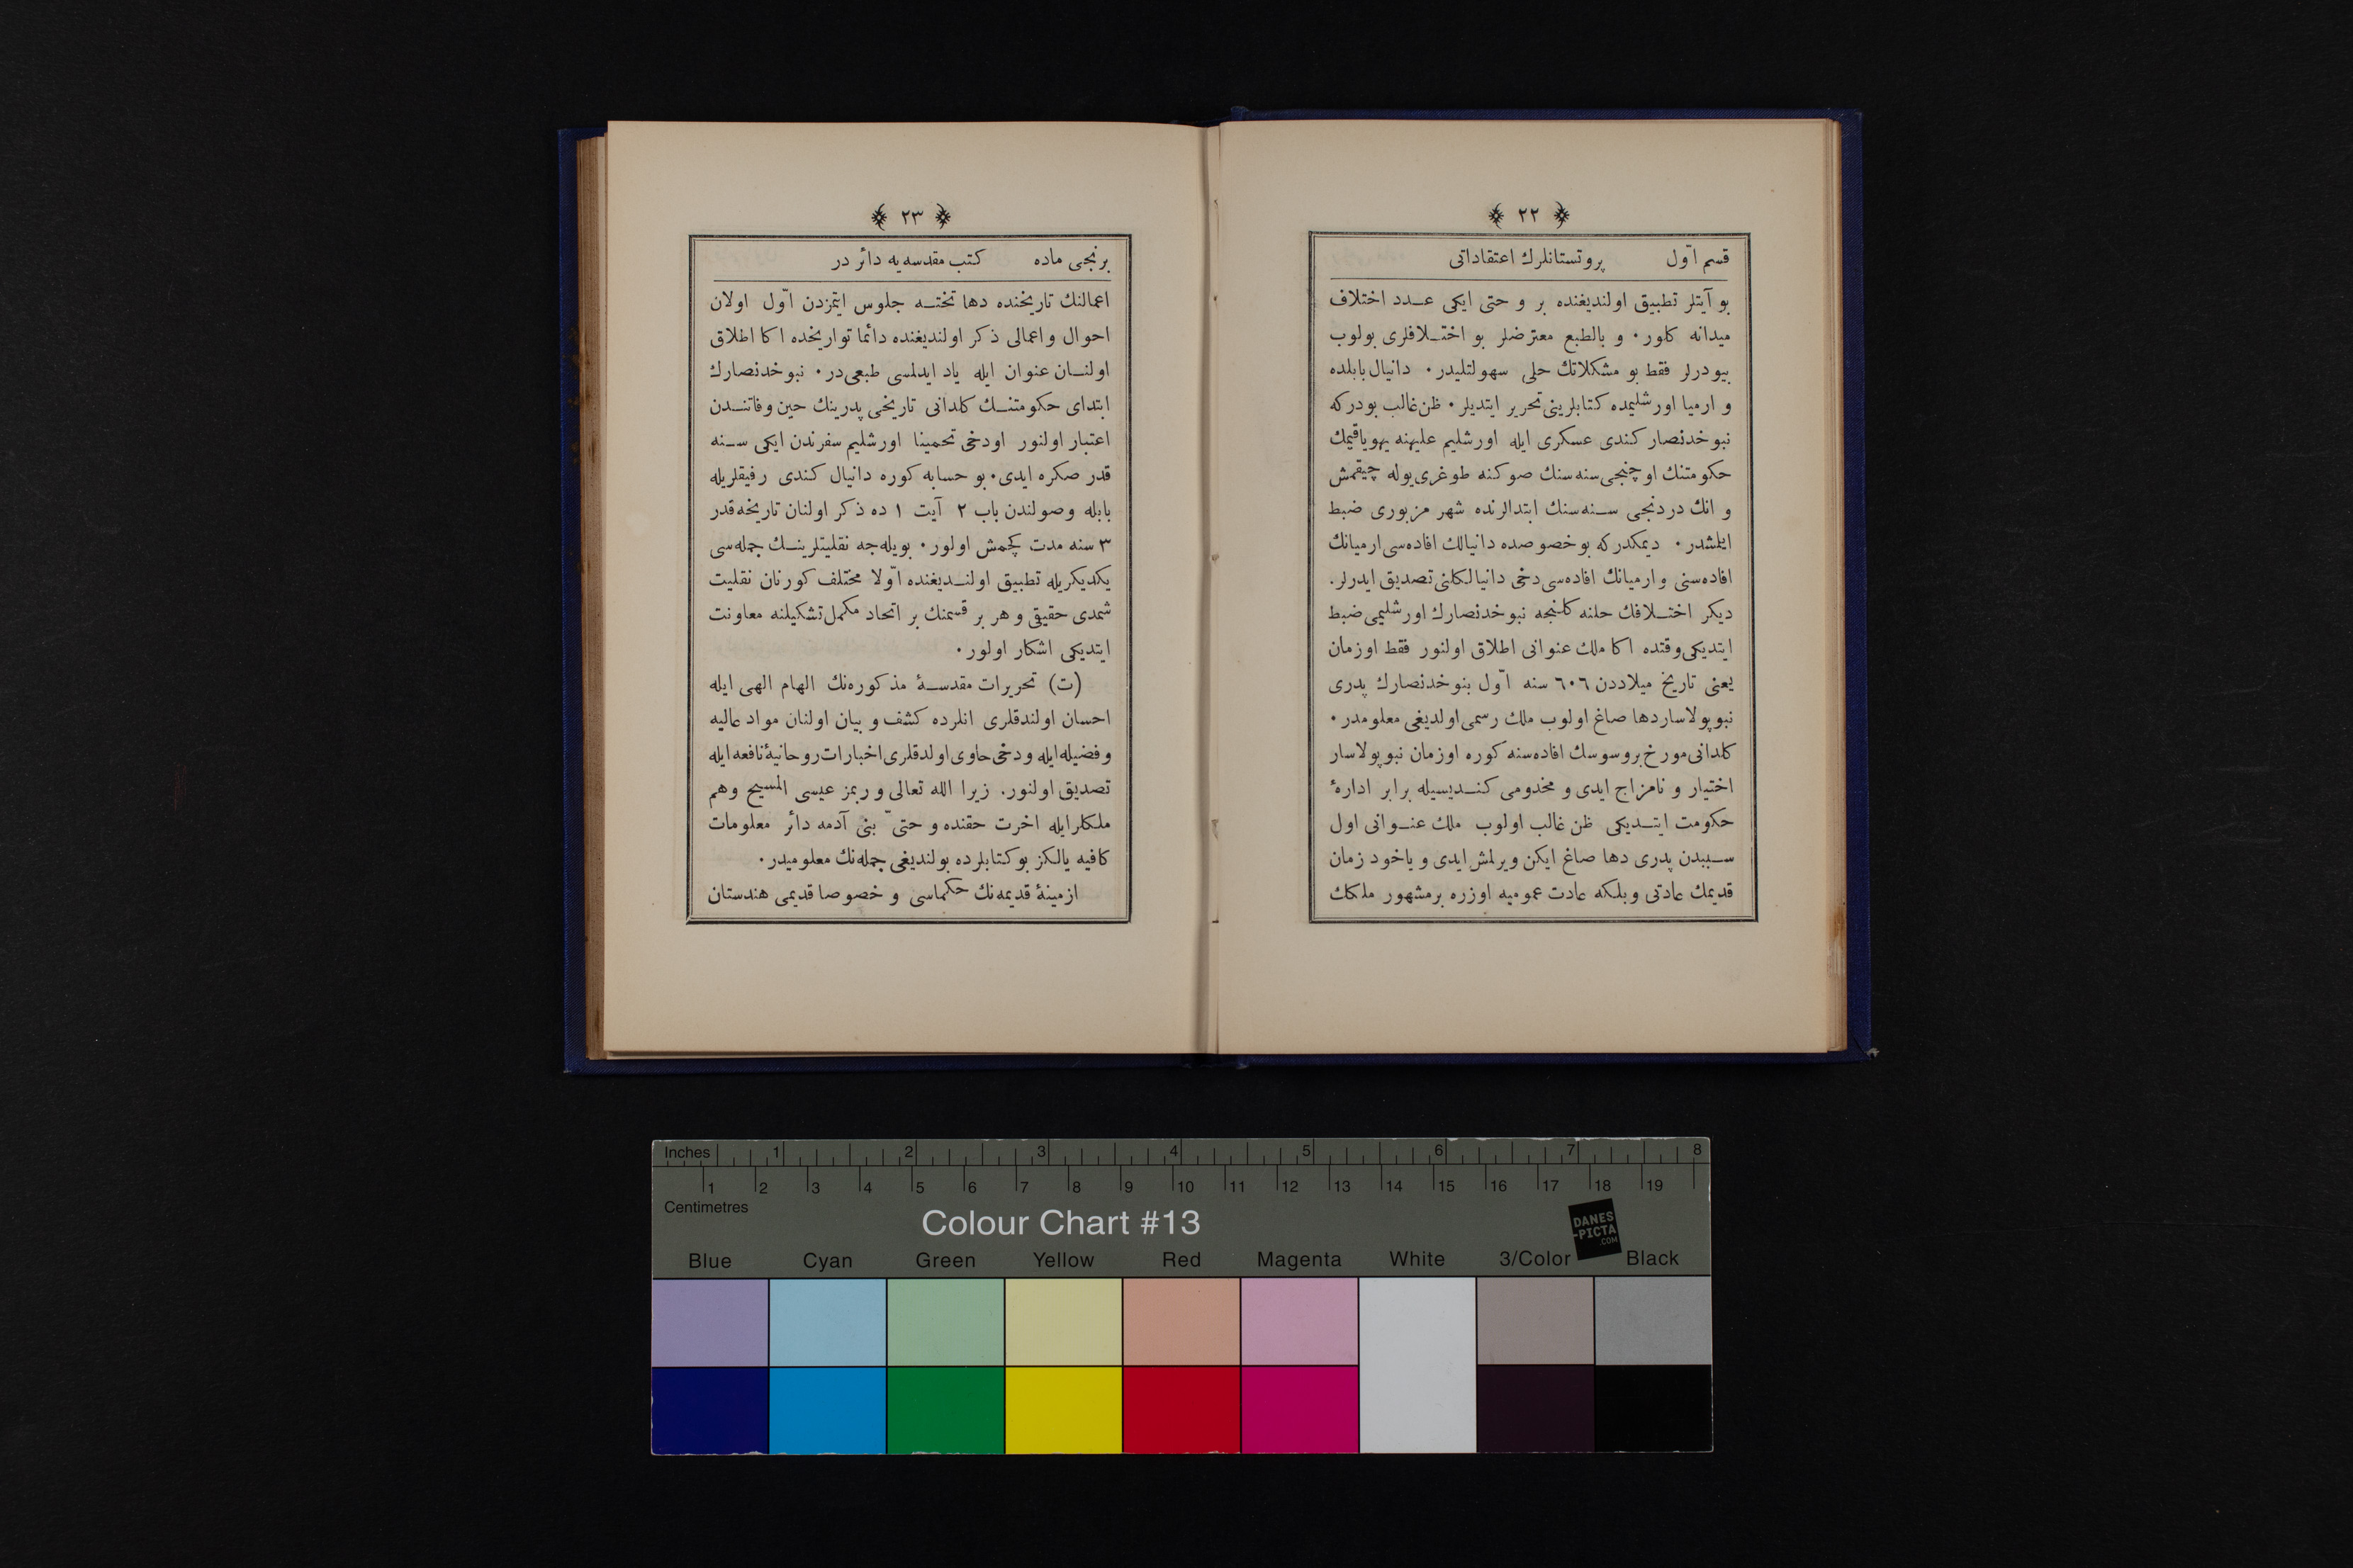 ﴿ ٢٢ ﴾
قسم اوّل پروتستانلرك اعتقاداتى
بو آيتلر تطبيق اولنديغنده بر و حتى ايكى عدد اختلاف
ميدانه كلور٠ و بالطبع معترضلر بو اختلافلرى بولوب
بيودرلر فقط بو مشكلاتك حلى سهولتليدر٠ دانيال بابلده
و ارميا اورشليمده كتابلرينى تحرير ايتديلر٠ ظن غالب بودركه
نبوخدنصار كندى عسكرى ايله اورشليم عليهنه يهوياقيمك
حكومتنك اوچنجى سنه سنك صوكنه طوغرى يوله چيقمش
و انك دردنجى سنه سنك ابتدالرنده شهر مزبورى ضبط
ايلمشدر٠ ديمكدركه بو خصوصده دانيالك افاده سى ارميانك
افاده سنى و ارميانك افاده سى دخى دانيالككنى تصديق ايدرلر.
ديكر اختلافك حلنه كلنجه نبوخدنصارك اورشليمى ضبط
ايتديكى وقتده اكا ملك عنوانى اطلاق اولنور فقط اوزمان
يعنى تاريخ ميلاددن ٦٠٦ سنه اوّل بنوخدنصارك پدرى
نبوپولاسار دها صاغ اولوب ملك رسمى اولديغى معلومدر٠
كلدانى مورخ بروسوسك افاده سنه كوره اوزمان نبوپولاسار
اختيار و نامزاج ايدى و مخدومى كنديسيله برابر ادارۀ
حكومت ايتديكى ظن غالب اولوب ملك عنوانى اول
سببدن پدرى دها صاغ ايكن ويرلمش ايدى و ياخود زمان
قديمك عادتى وبلكه عادت عموميه اوزره برمشهور ملكك
﴿ ٢٣ ﴾
برنجى ماده كتب مقدسه يه دائر در
اعمالنك تاريخنده دها تخته جلوس ايتمزدن اوّل اولان
احوال واعمالى ذكر اولنديغنده دائما تواريخده اكا اطلاق
اولنان عنوان ايله ياد ايدلمسى طبعى در٠ نبوخدنصارك
ابتداى حكومتنك كلدانى تاريخى پدرينك حين وفاتندن
اعتبار اولنور اودخى تخمينا اورشليم سفرندن ايكى سنه
قدر صكره ايدى٠ بو حسابه كوره دانيال كندى رفيقلريله
بابله وصولندن باب ٢ آيت ١ ده ذكر اولنان تاريخه قدر
٣ سنه مدت كچمش اولور٠ بويله جه نقليتلرينك جمله سى
يكديكريله تطبيق اولنديغنده اوّلا مختلف كورنان نقليت
شمدى حقيقى و هر بر قسمنك بر اتحاد مكمل تشكيلنه معاونت
ايتديكى اشكار اولور٠
(ت) تحريرات مقدسۀ مذكوره نك الهام الهى ايله
احسان اولندقلرى انلرده كشف و بيان اولنان مواد عاليه
و فضيله ايله و دخى حاوى اولدقلرى اخبارات روحانيۀ نافعه ايله
تصديق اولنور. زيرا الله تعالى و ربمز عيسى المسيح وهم
ملكلر ايله اخرت حقنده و حتىّ بنى آدمه دائر معلومات
كافيه يالكز بو كتابلرده بولنديغى جمله نك معلوميدر٠
ازمينۀ قديمه نك حكماسى و خصوصا قديمى هندستان
Inches 1 2 3 4 5 6 7 8
1 2 3 4 5 6 7 8 9 10 11 12 13 14 15 16 17 18 19
Centimetres
Colour Chart #13
DANES
-PICTA
.COM
Blue Cyan Green Yellow Red Magenta White 3/Color Black